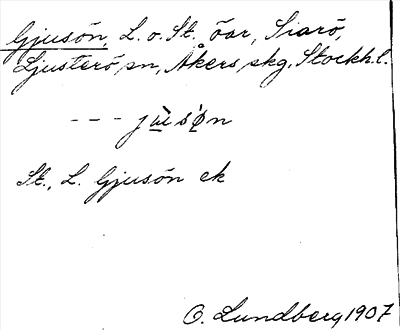 Gjusön, L. o. St. öar, Siarö,
Ljusterö sn, Åkers skg. Stockh. l.
- - - jùsø̀n
St., L. Gjusön ek
O. Lundberg 1907